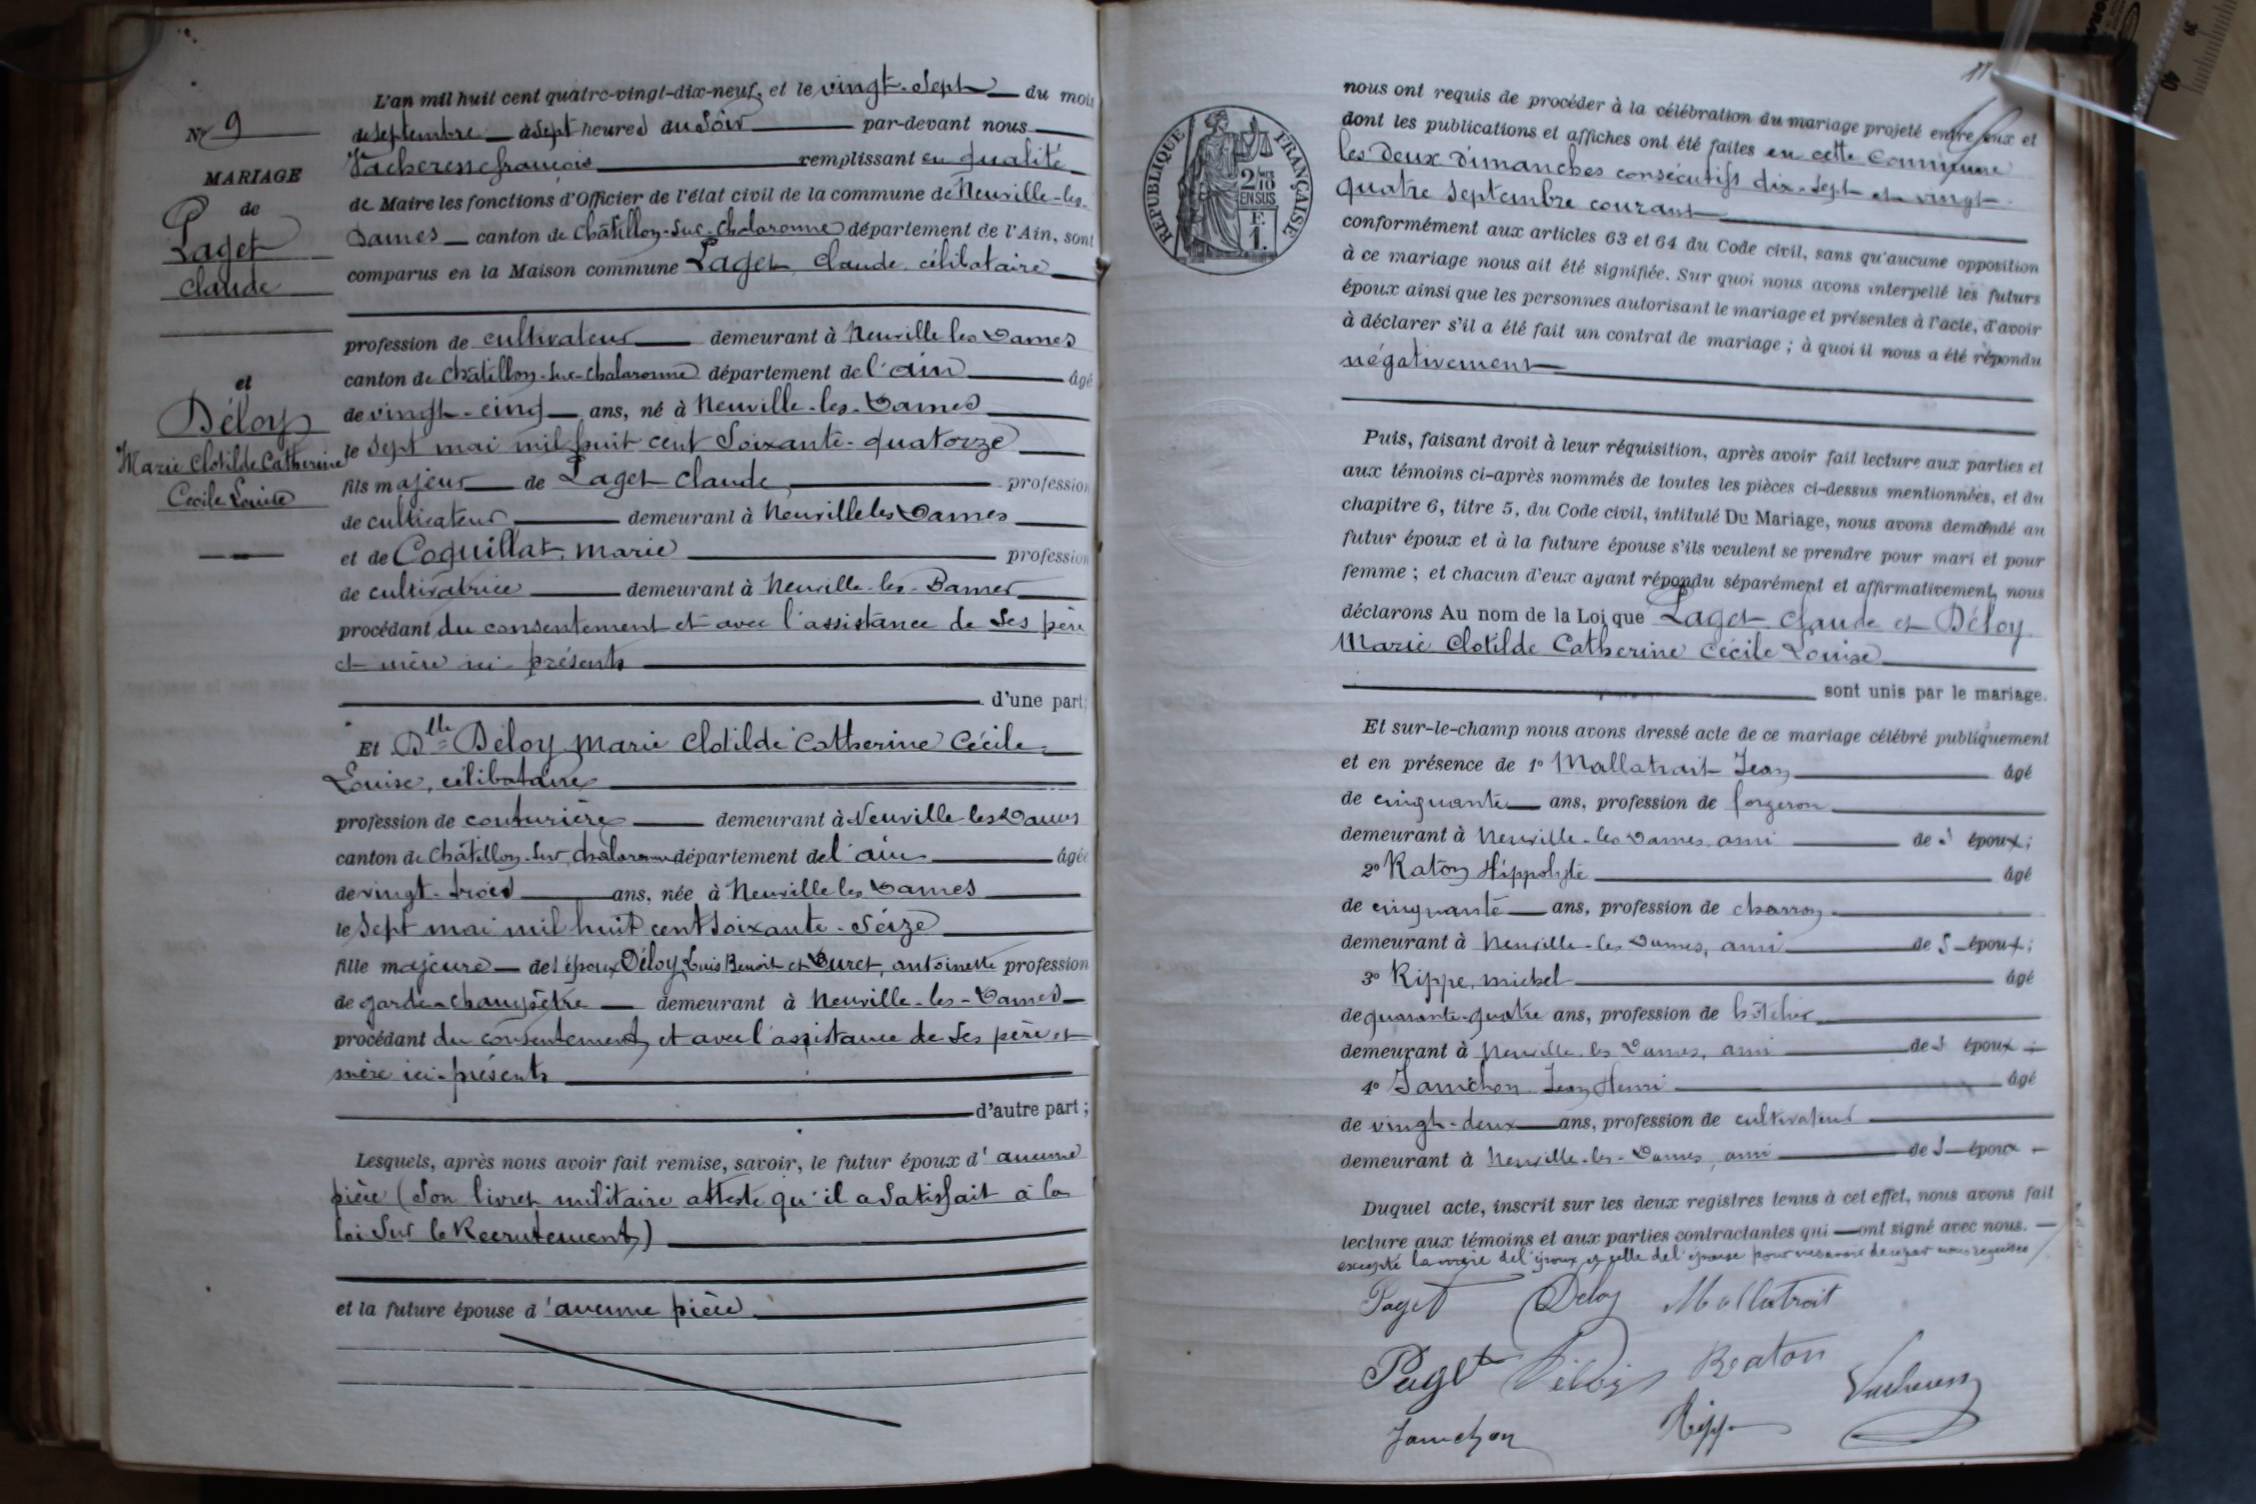 N° 9
MARIAGE
de
Paget
Claude
et
Déloy
Marie Clotilde Catherine
Cécile Louise
L'an mil huit cent quatre-vingt-dix-neuf, et le vingt-sept du mois
de septembre à sept heures du soir par-devant nous
Vacheresse françois remplissant en qualité
de Maire les fonctions d'Officier de l'état civil de la commune de Neuville-les-
Dames canton de Châtillon-sur-Chalaronne département de l'Ain, sont
comparus en la Maison commune Paget, Claude, célibataire
profession de cultivateur demeurant à Neuville les Dames
canton de Châtillon-sur-Chalaronne département de l'ain âgé
de vingt-cinq ans, né à Neuville-les-Dames
le sept mai mil huit cent soixante-quatorze
fils majeur de Paget Claude, profession
de cultivateur demeurant à Neuville les Dames
et de Coquillat, marie profession
de cultivatrice demeurant à Neuville-les-Dames
procédant du consentement et avec l'assistance de ses père
et mère ici présents
d'une part;
Et Dlle Déloy marie Clotilde Catherine Cécile
Louise, célibataire
profession de couturière demeurant à Neuville les Dames
canton de Châtillon-sur-chalaronne département de l'ain âgée
de vingt-trois ans, née à Neuville les Dames
le sept mai mil huit cent soixante-seize
fille majeure de s époux Déloy, Louis Benoit et Buret, antoinette profession
de garde-champêtre demeurant à Neuville-les-Dames
procédant du consentement et avec l'assistance de ses père et
mère ici-présents
d'autre part;
Lesquels, après nous avoir fait remise, savoir, le futur époux d'aucune
pièce (son livret militaire atteste qu'il a satisfait à la
loi sur le Recrutement)
et la future épouse d'aucune pièce.
11
RÉPUBLIQUE FRANÇAISE
2/10
EN SUS
F.
1.
nous ont requis de procéder à la célébration du mariage projeté entre eux et
dont les publications et affiches ont été faites en cette Commune
les deux dimanches consécutifs dix-sept et vingt-
quatre septembre courant
conformément aux articles 63 et 64 du Code civil, sans qu'aucune opposition
à ce mariage nous ait été signifiée. Sur quoi nous avons interpellé les futurs
époux ainsi que les personnes autorisant le mariage et présentes à l'acte, d'avoir
à déclarer s'il a été fait un contrat de mariage; à quoi il nous a été répondu
négativement
Puis, faisant droit à leur réquisition, après avoir fait lecture aux parties et
aux témoins ci-après nommés de toutes les pièces ci-dessus mentionnées, et du
chapitre 6, titre 5, du Code civil, intitulé Du Mariage, nous avons demandé au
futur époux et à la future épouse s'ils veulent se prendre pour mari et pour
femme; et chacun d'eux ayant répondu séparément et affirmativement, nous
déclarons Au nom de la Loi que Paget Claude et Déloy
Marie Clotilde Catherine Cécile Louise
sont unis par le mariage.
Et sur-le-champ nous avons dressé acte de ce mariage célébré publiquement
et en présence de 1° Mallatrait Jean âgé
de cinquante ans, profession de forgeron
demeurant à Neuville-les-Dames, ami de s époux;
2° Raton Hippolyte âgé
de cinquante ans, profession de charron
demeurant à Neuville-les-Dames, ami de s époux;
3° Rippe, michel âgé
de quarante-quatre ans, profession de hôtelier
demeurant à Neuville-les-Dames, ami de s époux
4° Jamichon Jean Henri âgé
de vingt-deux ans, profession de cultivateur
demeurant à Neuville-les-Dames, ami de s époux
Duquel acte, inscrit sur les deux registres tenus à cet effet, nous avons fait
lecture aux témoins et aux parties contractantes qui ont signé avec nous.
excepté la mère de l'époux et celle de l'épouse pour ne savoir de ce par nous requises
Paget Deloy Mallatrait
Paget Déloy Raton
Vacheresse
Jamichon Rippe
39
40